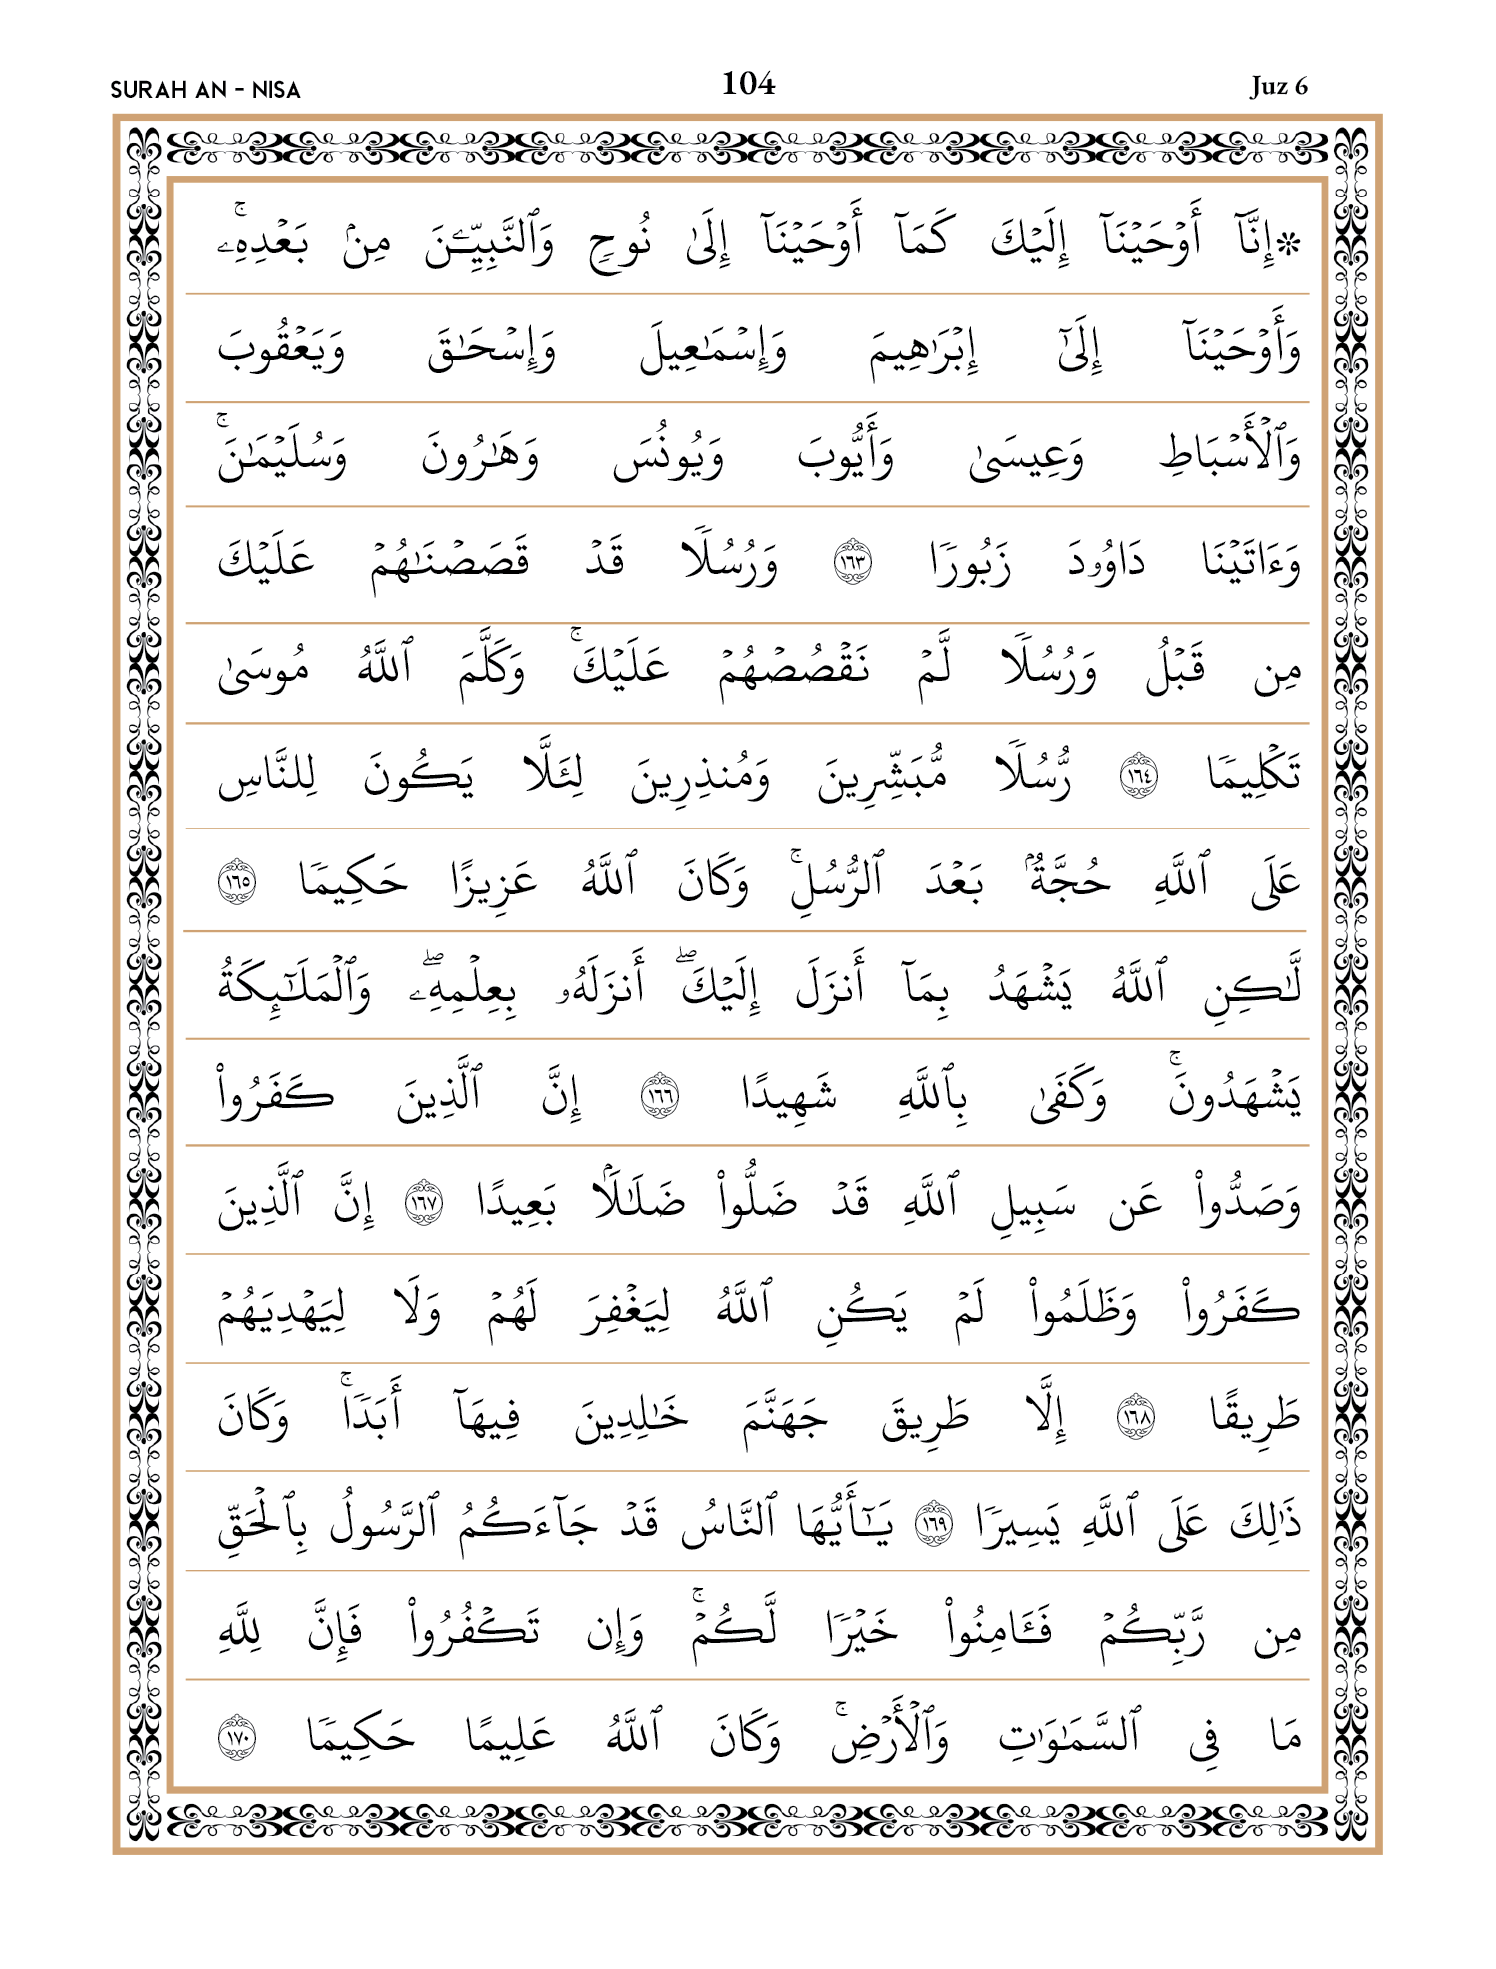 SURAH AN - NISA 104 Juz 6
۞إِنَّآ أَوۡحَيۡنَآ إِلَيۡكَ كَمَآ أَوۡحَيۡنَآ إِلَىٰ نُوحٖ وَٱلنَّبِيِّـۧنَ مِنۢ بَعۡدِهِۦۚ
وَأَوۡحَيۡنَآ إِلَىٰٓ إِبۡرَٰهِيمَ وَإِسۡمَٰعِيلَ وَإِسۡحَٰقَ وَيَعۡقُوبَ
وَٱلۡأَسۡبَاطِ وَعِيسَىٰ وَأَيُّوبَ وَيُونُسَ وَهَٰرُونَ وَسُلَيۡمَٰنَۚ
وَءَاتَيۡنَا دَاوُۥدَ زَبُورٗا ١٦٣ وَرُسُلٗا قَدۡ قَصَصۡنَٰهُمۡ عَلَيۡكَ
مِن قَبۡلُ وَرُسُلٗا لَّمۡ نَقۡصُصۡهُمۡ عَلَيۡكَۚ وَكَلَّمَ ٱللَّهُ مُوسَىٰ
تَكۡلِيمٗا ١٦٤ رُّسُلٗا مُّبَشِّرِينَ وَمُنذِرِينَ لِئَلَّا يَكُونَ لِلنَّاسِ
عَلَى ٱللَّهِ حُجَّةُۢ بَعۡدَ ٱلرُّسُلِۚ وَكَانَ ٱللَّهُ عَزِيزًا حَكِيمٗا ١٦٥
لَّٰكِنِ ٱللَّهُ يَشۡهَدُ بِمَآ أَنزَلَ إِلَيۡكَۖ أَنزَلَهُۥ بِعِلۡمِهِۦۖ وَٱلۡمَلَٰٓئِكَةُ
يَشۡهَدُونَۚ وَكَفَىٰ بِٱللَّهِ شَهِيدًا ١٦٦ إِنَّ ٱلَّذِينَ كَفَرُواْ
وَصَدُّواْ عَن سَبِيلِ ٱللَّهِ قَدۡ ضَلُّواْ ضَلَٰلَۢا بَعِيدًا ١٦٧ إِنَّ ٱلَّذِينَ
كَفَرُواْ وَظَلَمُواْ لَمۡ يَكُنِ ٱللَّهُ لِيَغۡفِرَ لَهُمۡ وَلَا لِيَهۡدِيَهُمۡ
طَرِيقًا ١٦٨ إِلَّا طَرِيقَ جَهَنَّمَ خَٰلِدِينَ فِيهَآ أَبَدٗاۚ وَكَانَ
ذَٰلِكَ عَلَى ٱللَّهِ يَسِيرٗا ١٦٩ يَٰٓأَيُّهَا ٱلنَّاسُ قَدۡ جَآءَكُمُ ٱلرَّسُولُ بِٱلۡحَقِّ
مِن رَّبِّكُمۡ فَـَٔامِنُواْ خَيۡرٗا لَّكُمۡۚ وَإِن تَكۡفُرُواْ فَإِنَّ لِلَّهِ
مَا فِي ٱلسَّمَٰوَٰتِ وَٱلۡأَرۡضِۚ وَكَانَ ٱللَّهُ عَلِيمًا حَكِيمٗا ١٧٠